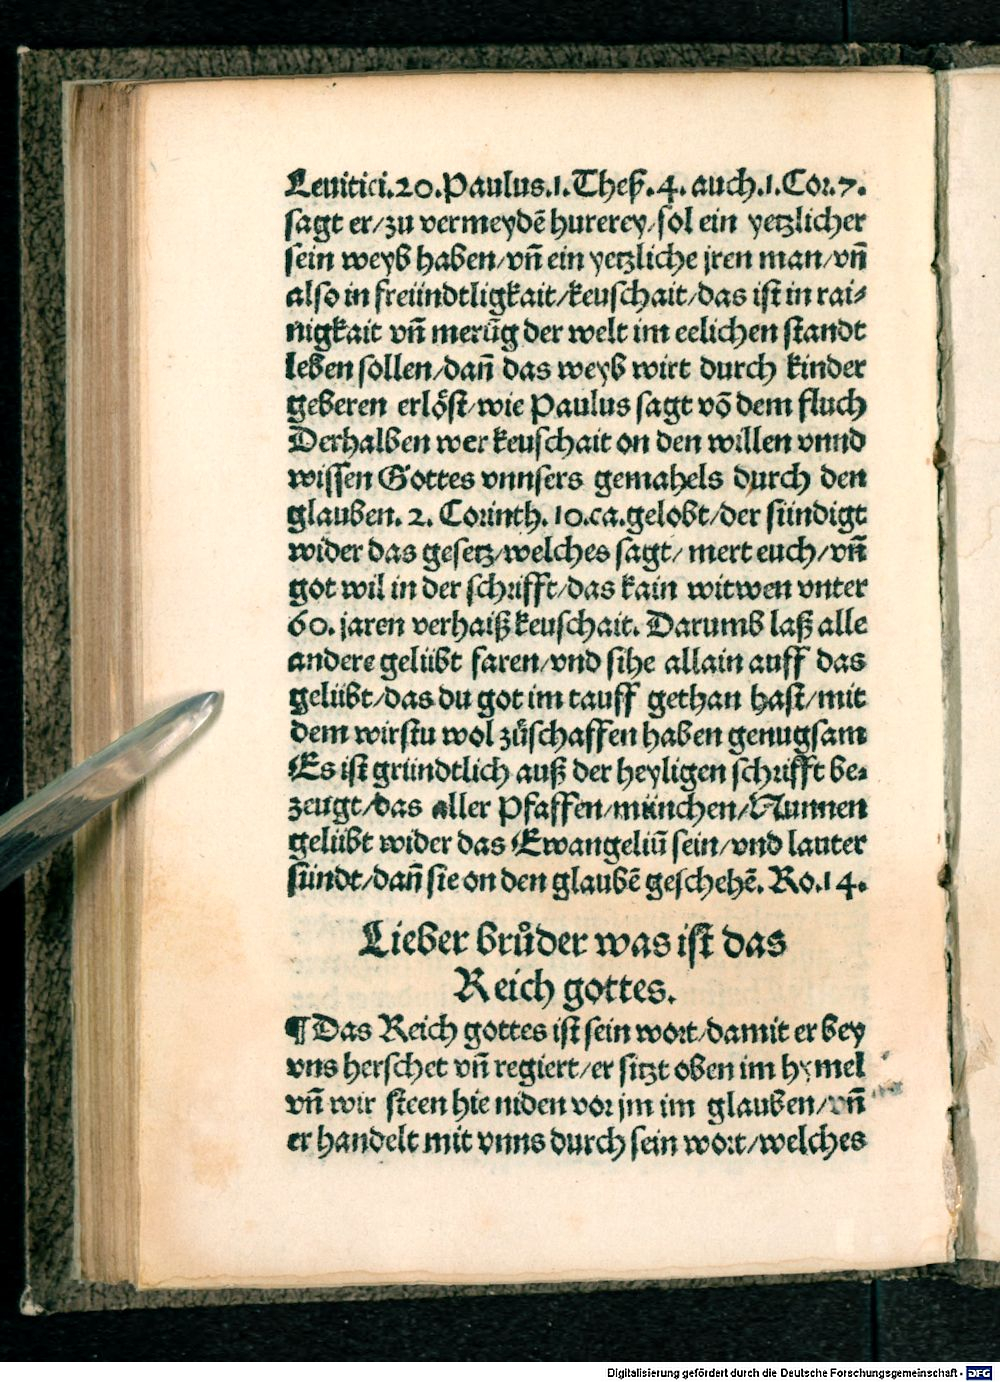 Leuitici.20.Paulus.1.Theß.4. auch.1.Cor.7.
sagt er/zu vermeydē hurerey/sol ein yetzlicher
sein weyb haben/vn̄ ein yetzliche jren man/vn̄
also in freündtligkait/keuschait/das ist in rai⸗
nigkait vn̄ merūg der welt im eelichen standt
leben sollen/dan̄ das weyb wirt durch kinder
geberen erlöst/wie Paulus sagt vō dem fluch
Derhalben wer keuschait on den willen vnnd
wissen Gottes vnnsers gemahels durch den
glauben. 2. Corinth. 10.ca.gelobt/der sündigt
wider das gesetz/welches sagt/ mert euch/vn̄
got wil in der schrifft/das kain witwen vnter
60. jaren verhaiß keuschait. Darumb laß alle
andere gelübt faren/vnd sihe allain auff das
gelübt/das du got im tauff gethan hast/mit
dem wirstu wol zůschaffen haben genugsam
Es ist gründtlich auß der heyligen schrifft be⸗
zeugt/das aller Pfaffen/münchen/Nunnen
gelübt wider das Ewangeliū sein/vnd lauter
sündt/dan̄ sie on den glaubē geschehē. Ro.14.
Lieber brůder was ist das
Reich gottes.
¶ Das Reich gottes ist sein wort/damit er bey
vns herschet vn̄ regiert/er sitzt oben im hymel
vn̄ wir steen hie niden vor jm im glauben/vn̄
er handelt mit vnns durch sein wort/welches
Digitalisierung gefördert durch die Deutsche Forschungsgemeinschaft - DFG